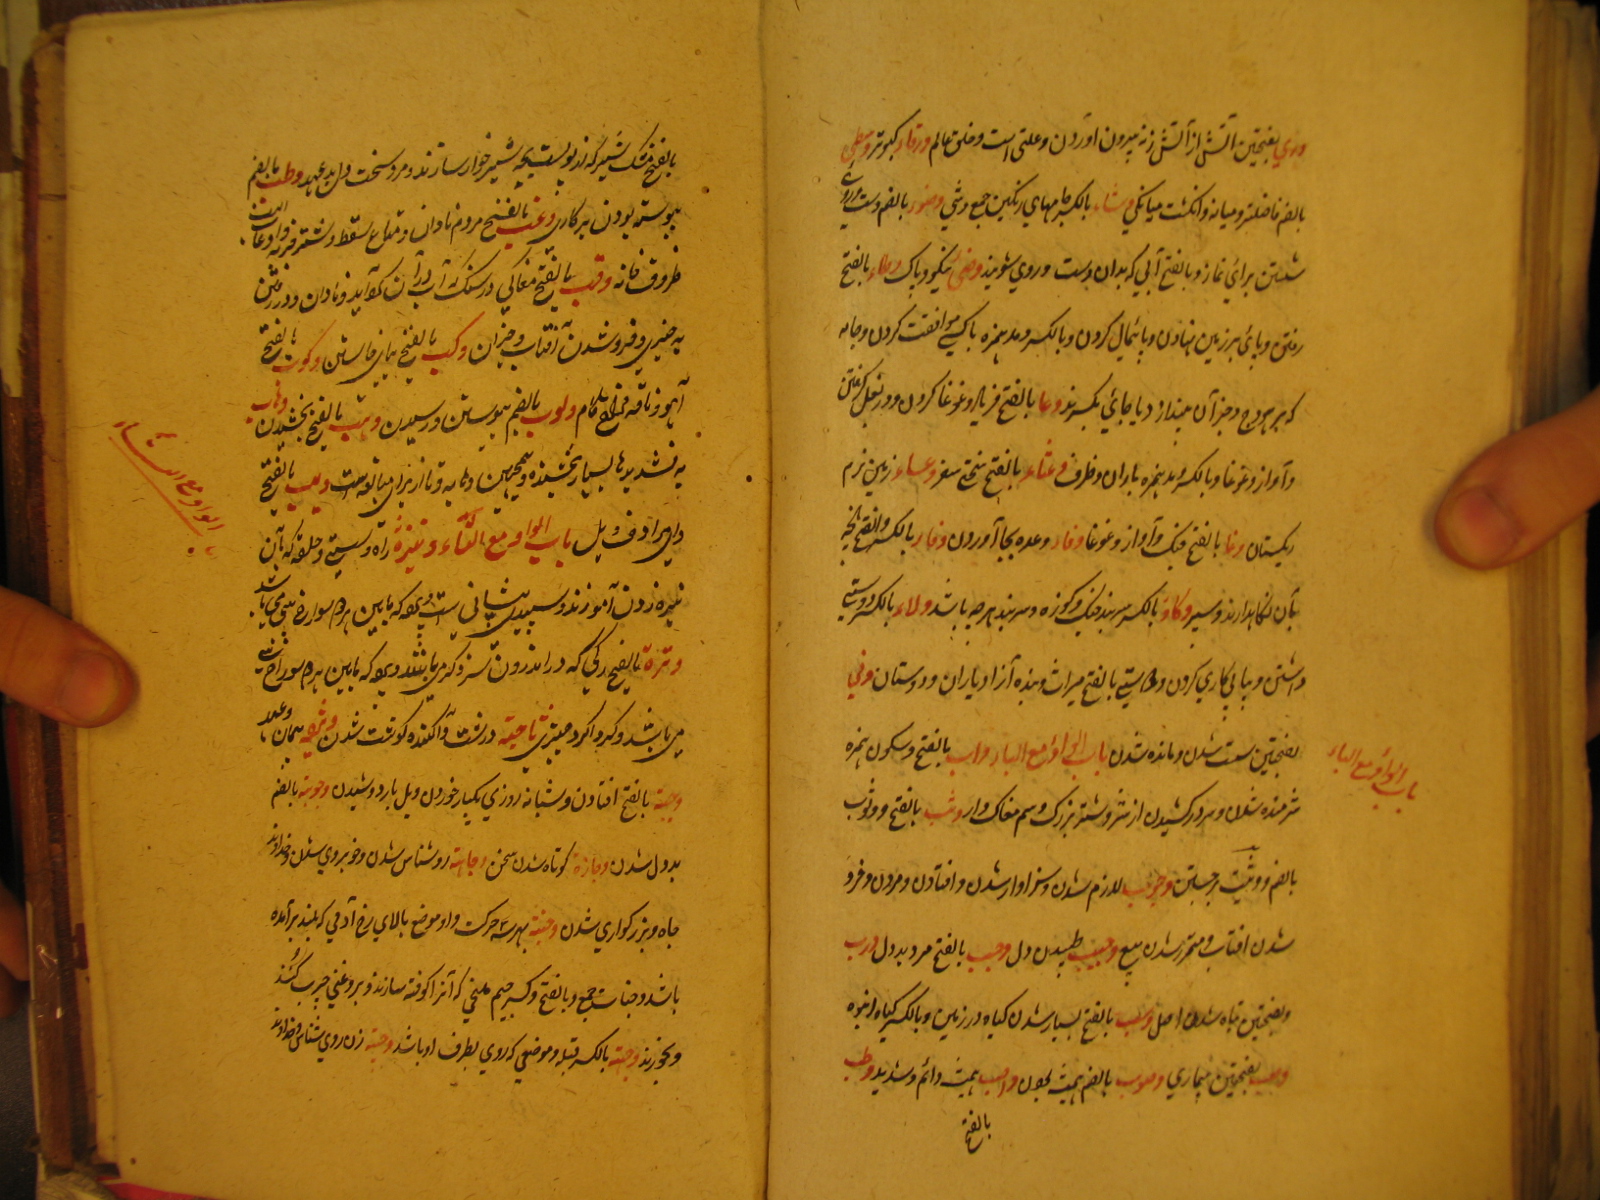 وری بفتحتین آتش از آتش زنه بیرون آوردن و علتی است و خلق عالم ورقاء کبوتر وسطی
بالضم فاضلتر و میانه و انگشت میانگی وشاء بالکسر جامهای رنگین جمع وشی وضوء بالضم دست و روی
شستن برای نماز و بالفتح آبی که بدان دست و روی شویند وضی نیکو و پاک وطاء بالفتح
رفتن و پای بر زمین نهادن و پایمال کردن و بالکسر و مد همزه با کسی موافقت کردن و جامه
که بر هودج و جز آن اندازد یا جائی بگسترند وعا بالفتح فریاد و غوغا کردن و در بغل گرفتن
و آواز و غوغا و بالکسر و مد همزه باردان و ظرف وعثاء بالفتح سختی سفر وعساء زمین نرم
ریگستان وغا بالفتح جنگ و آواز و غوغا وفاء وعده بجا آوردن وقاء بالکسر و الفتح آنچه
بآن نگاهدارند و سپر وکاء بالکسر سربند خنک و کوزه و سربند هرچه باشد ولاء بالکسر دوستی
داشتن و پیاپی کاری کردن و بالفتح میراث بنده آزاد و یاران و دوستان ونی
بفتحتین سست شدن و مانده شدن باب الواو مع الباء واب بالفتح و سکون همزه
شرمنده شدن و سر درکشیدن از شر و شتر بزرگ و سم مغاک دار وثب بالفتح و وثوب
بالضم و وثیب برجستن وجوب لازم شدن و سزاوار شدن و افتادن و مردن و فرو
شدن آفتاب و مقرر شدن بیع وجیب طپیدن دل وجب بالفتح مرد بددل ورب
بفتحتین تباه شدن اصل وسب بالفتح بسیار شدن گیاه در زمین و بالکسر گیاه انبوه
وصب بفتحتین بیماری وصوب بالضم همیشه بودن واصب همیشه دائم و شدید وطب
بالفتح
باب الواو مع الباء
بالفتح مشک شیر که از پوست بچه شیر خوار سازند و مرد سخت دل بد عهد وظب بالضم
پیوسته بودن بر کاری وغب بالفتح مردم نادان و متاع سقط و شتر فربه
ظروف خانه وقب بالفتح مغاکی در سنگ که آب در آن گرد آید و نادان و در رفتن
به چیزی و فرو شدن آفتاب و جز آن وکب بالفتح بپای خاستن وکوب بالفتح
آهو و ناقه ولوب بالضم پیوستن و رسیدن وهب بالفتح بخشیدن وهاب
به تشدید ها بسیار بخشنده و همچنین وهابه و تا از برای مبالغه است ویب بالفتح
وای مرادف ویل باب الواو مع التاء وتیره راه و سستی و حلقه که بآن
نیزه زدن آموزند و سپیدی پیشانی است و پرده که مابین هر دو سوراخ بینی باشد
وتره بالفتح رگی که در اندرون سر ذکر می باشد و پرده که مابین هر دو سوراخ بینی
می باشد و گرداگرد چیزی وثاجة درشت و آگنده گوشت شدن همان و عهد
وجبة بالفتح افتادن و شبانه روزی یکبار خوردن و وجوبة بالضم
بددل شدن وجازة کوتاه شدن سخن وجاهة روشناس شدن و خوبروی شدن و خداوند
جاه و بزرگواری شدن وجنة بهر سه حرکت واو موضع بالای رخ آدمی که بلند برآمده
باشد وجنات جمع و بالفتح و کسر جیم ملخی که آنرا کوفته سازند و بروغن چرب کنند
و بخورند وجهة بالکسر قبله و موضعی که روی بطرف او باشد وجیهة زن روی شناس و خداوند
الواو مع التاء